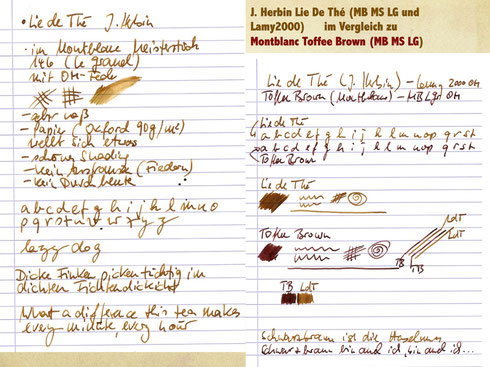 • Lie de Thé J. Herbin
• im Montblanc Meisterstück
146 (le grand)
mit OM-Feder
- sehr naß
- Papier (Oxford 90g/m²)
wellt sich etwas
- schönes Shading
- kein Ausfransen (Fiedern)
- kein Durchbluten
a b c d e f g h i j k l m n o
p q r s t u v w x y z
lazy dog
Dicke Finken picken tüchtig im
dichten Fichtendickicht
What a difference this tea makes
every minute, every hour
J. Herbin Lie De Thé (MB MS LG und
Lamy2000) im Vergleich zu
Montblanc Toffee Brown (MB MS LG)
Lie de Thé (J. Herbin) - Lamy 2000 OM
Toffee Brown (Montblanc) - MB LgG OM
Lie de Thé
a b c d e f g h i j k l m n o p q r s t
a b c d e f g h i j k l m n o p q r s t
Toffee Brown
Lie de Thé
Toffee Brown
LdT
LdT
TB
TB
TB LdT
Schwarzbraun ist die Haselnuss
Schwarzbraun bin auch ich, bin auch ich...